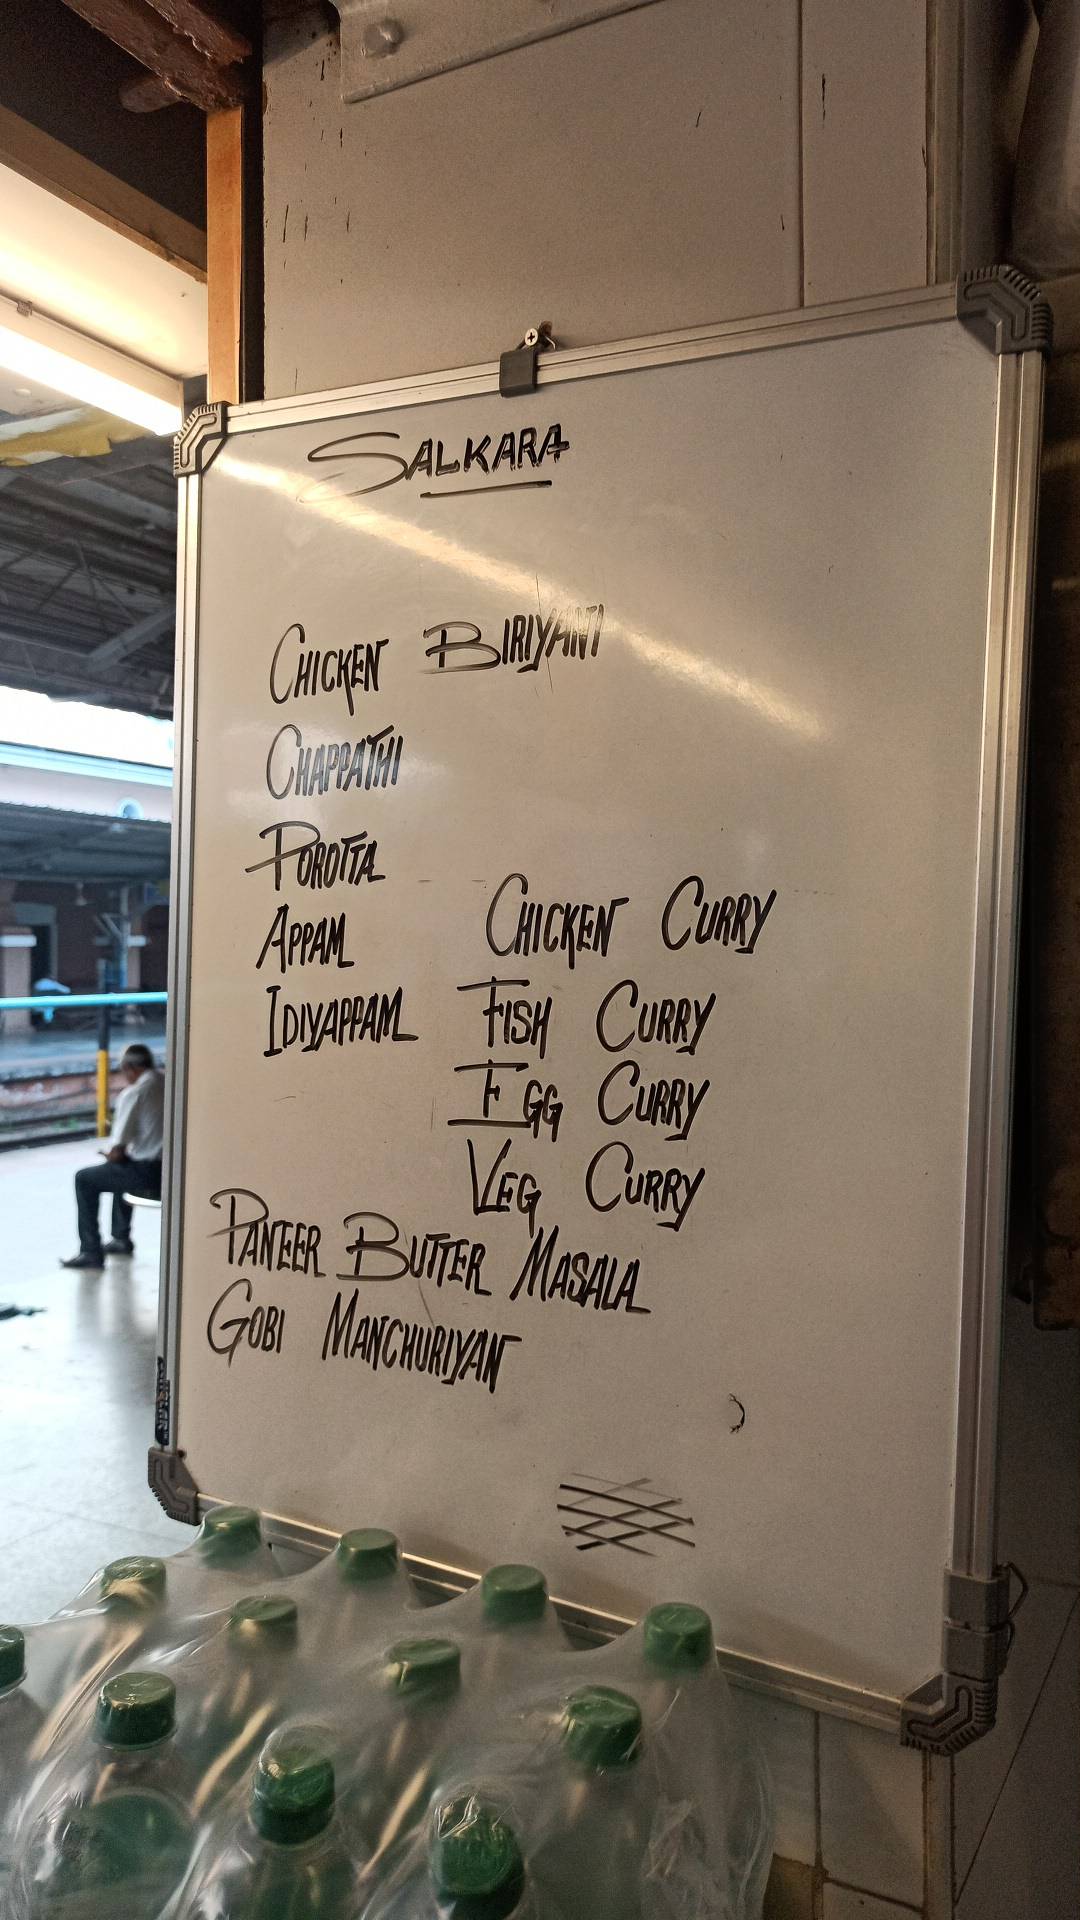 SALKARA
CHICKEN BIRIYANI
CHAPPATHI
POROTTA
APPAM
IDIYAPPAM
CHICKEN CURRY
FISH CURRY
EGG CURRY
VEG CURRY
PANEER BUTTER MASALA
GOBI MANCHURIYAN